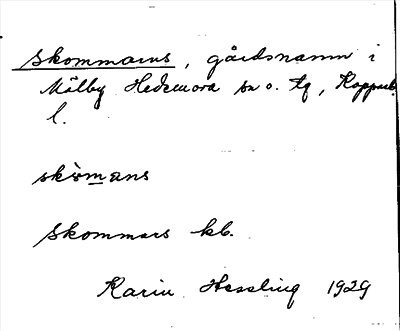 Skommars, gårdsnamn i
Målby Hedemora sn o. tg, Kopparb.
l.
skòmans
Skommars kb.
Karin Hessling 1929